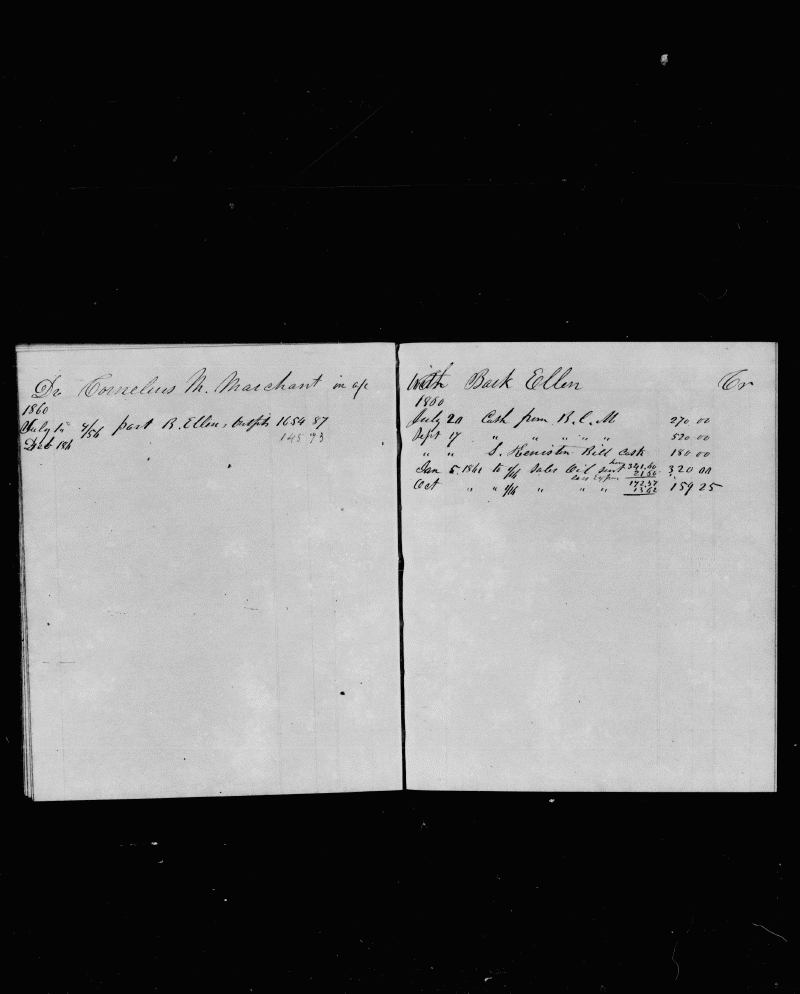 Dr Cornelius M. Marchant in a/c
1860
July 12 4/56 part B. Ellens Outfits 1654 87
Dec 186 145 93
With Bark Ellen Cr
1860
July 20 Cash from B. C. M 270 00
Sept 17 " " " " " 520 00
" " S. Keniston Bill Cash 180 00
Jan 5. 1861 to 4/56 Sales Oil 341.60 320 00
21 60
Oct " " " " " 172.87 159 25
13 62